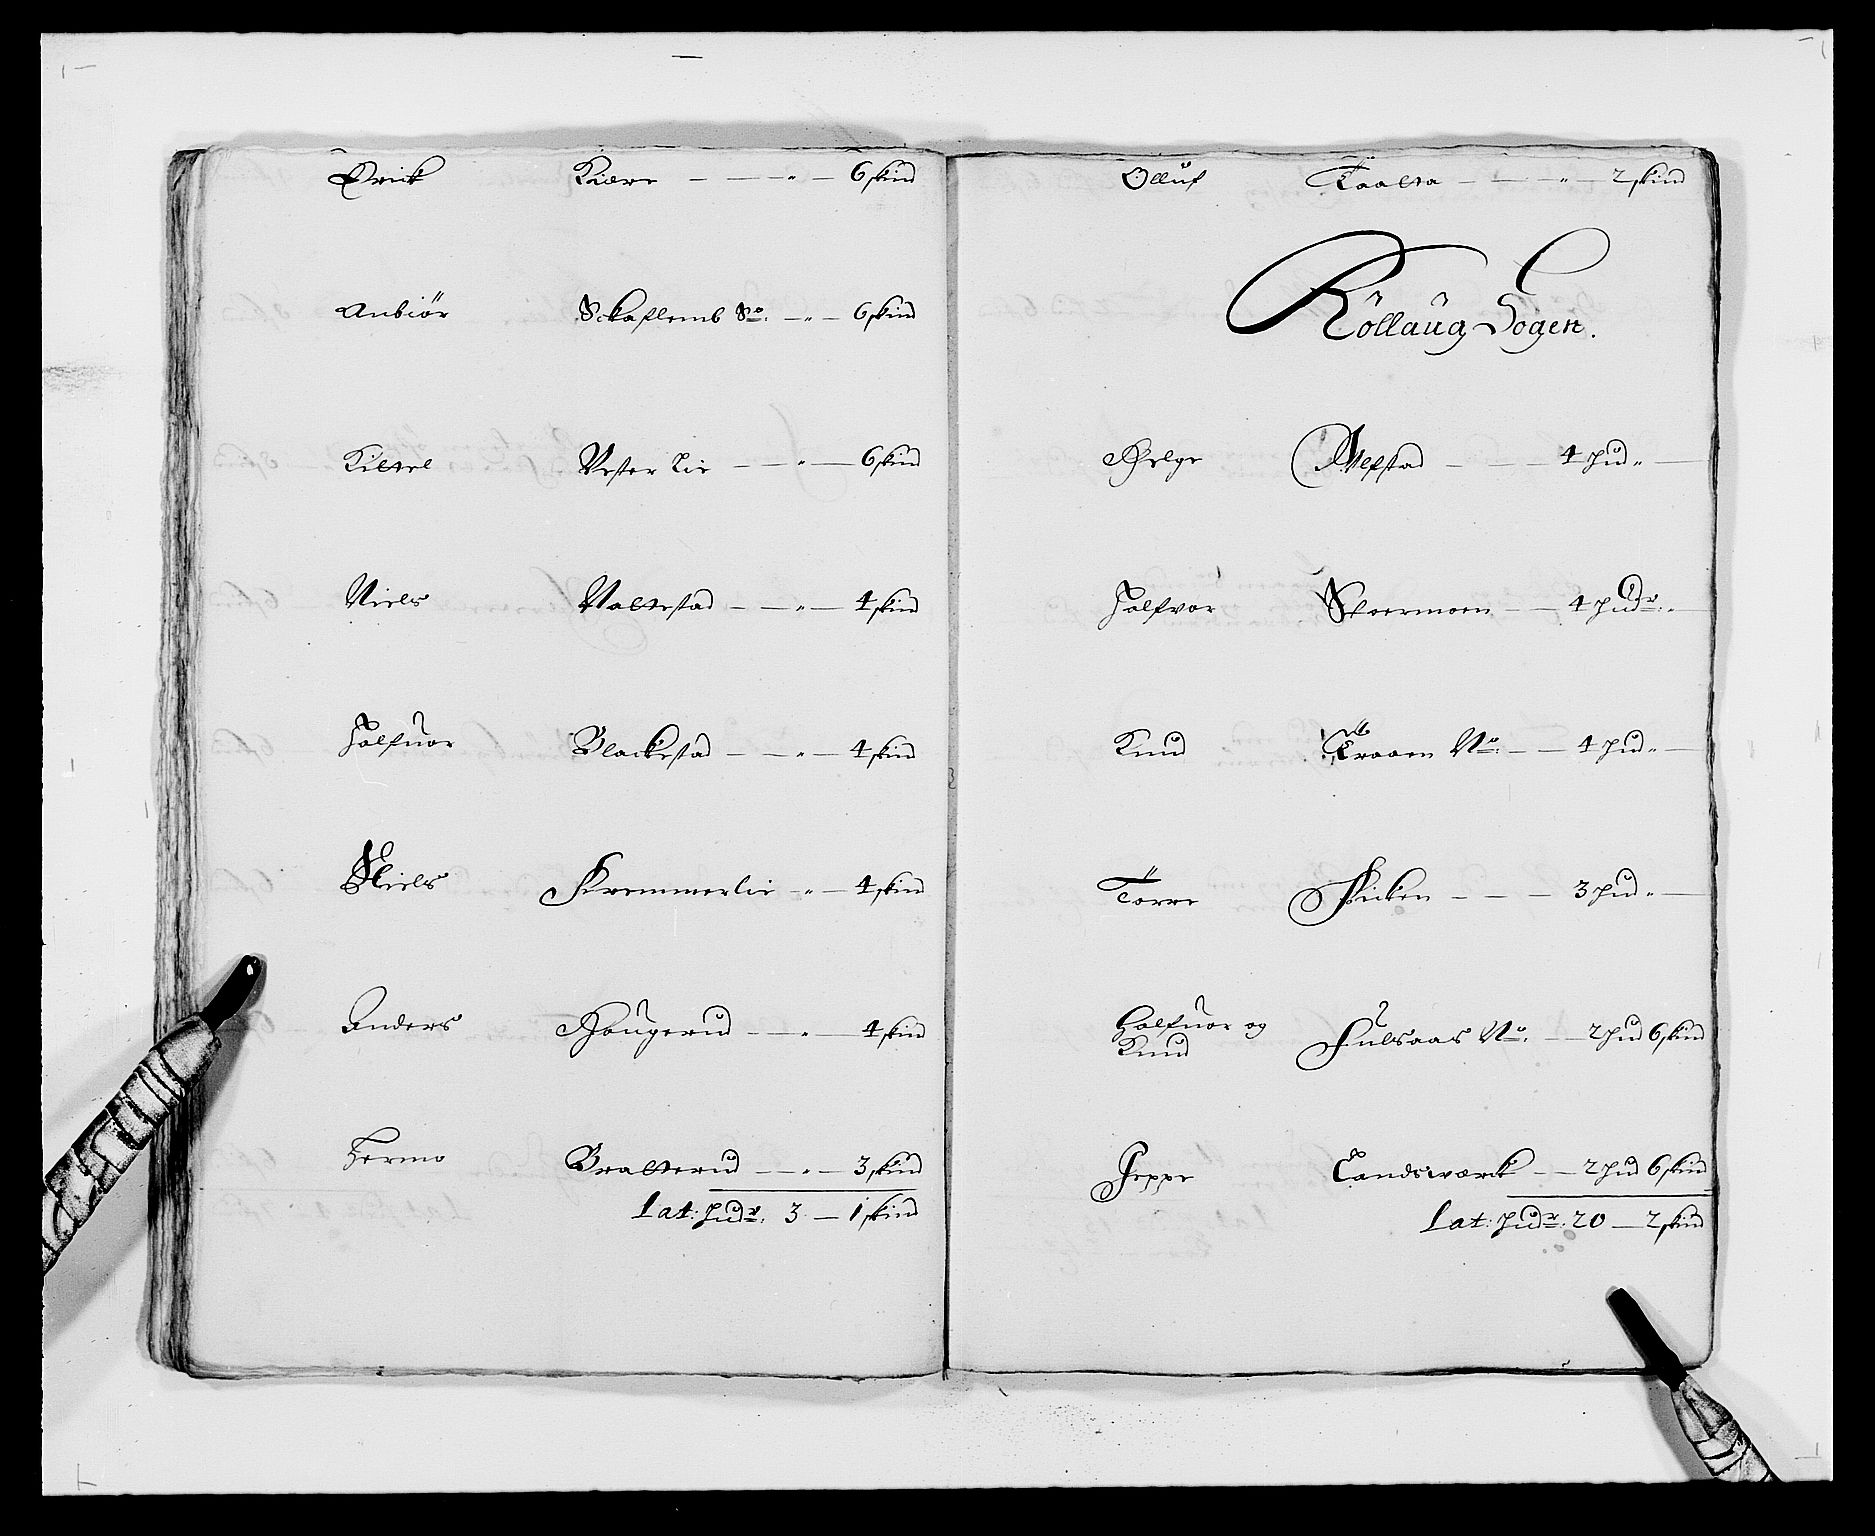 Erick Kiære — — „ — 6 skind
Anbiör Sckaflemb Sø: — „ — 6 skind
Kiettel Vester Lie — — „ — 6 skind
Niels Valtestad — — „ — 4 skind
Halfuor Blackestad — — „ — 4 skind
Niels Kremmerlie — „ — 4 skind
Anders Haugerud — — „ 4 skind
Hermo Bratterud — „ — 3 skind
Lat: hudr. 3 — 1 skind
Olluf Taatta — — „ — 2 skind
Röllaug Sogen.
Helge Alfstad — — — 4 hud „ —
Halfvor Stoermoen — — 4 hudr: „
Knud Traaen No: — — 4 hud „ —
Torre Ficken — — — 3 hud „ —
Halfuor og
Knud Fulsaas No: — 2 hud 6 skind
Jeppe Landsværck — 2 hud 6 skind
Lat: hudr: 20 — 2 skind